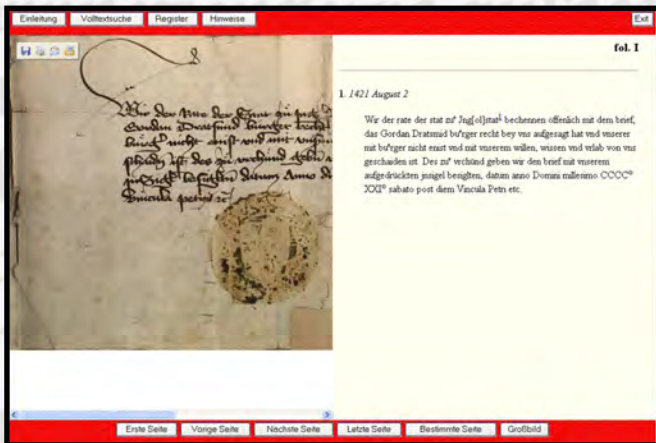 Einleitung Volltextsuche Register Hinweise Exit
fol. I
1. 1421 August 2
Wir der rate der stat zuͦ Jng[ol]stat¹ bechennen offenlich mit dem brief,
das Gordan Dratsmid buͦrger recht bey vns aufgesagt hat vnd vnserer
mit buͦrger nicht enist vnd mit vnserem willen, wissen vnd vrlab von vns
geschaiden ist. Des zuͦ vrchünd geben wir den brief mit vnserem
aufgedrückten jnsigel besiglten, datum anno Domini millesimo CCCCº
XXIº sabato post diem Vincula Petri etc.
Wir der Rate der Stat zu
Gordan Dratsmid burger recht
burger nicht enist vnd mit
datum Anno
Vincula petri
Erste Seite Vorige Seite Nächste Seite Letzte Seite Bestimmte Seite Großbild